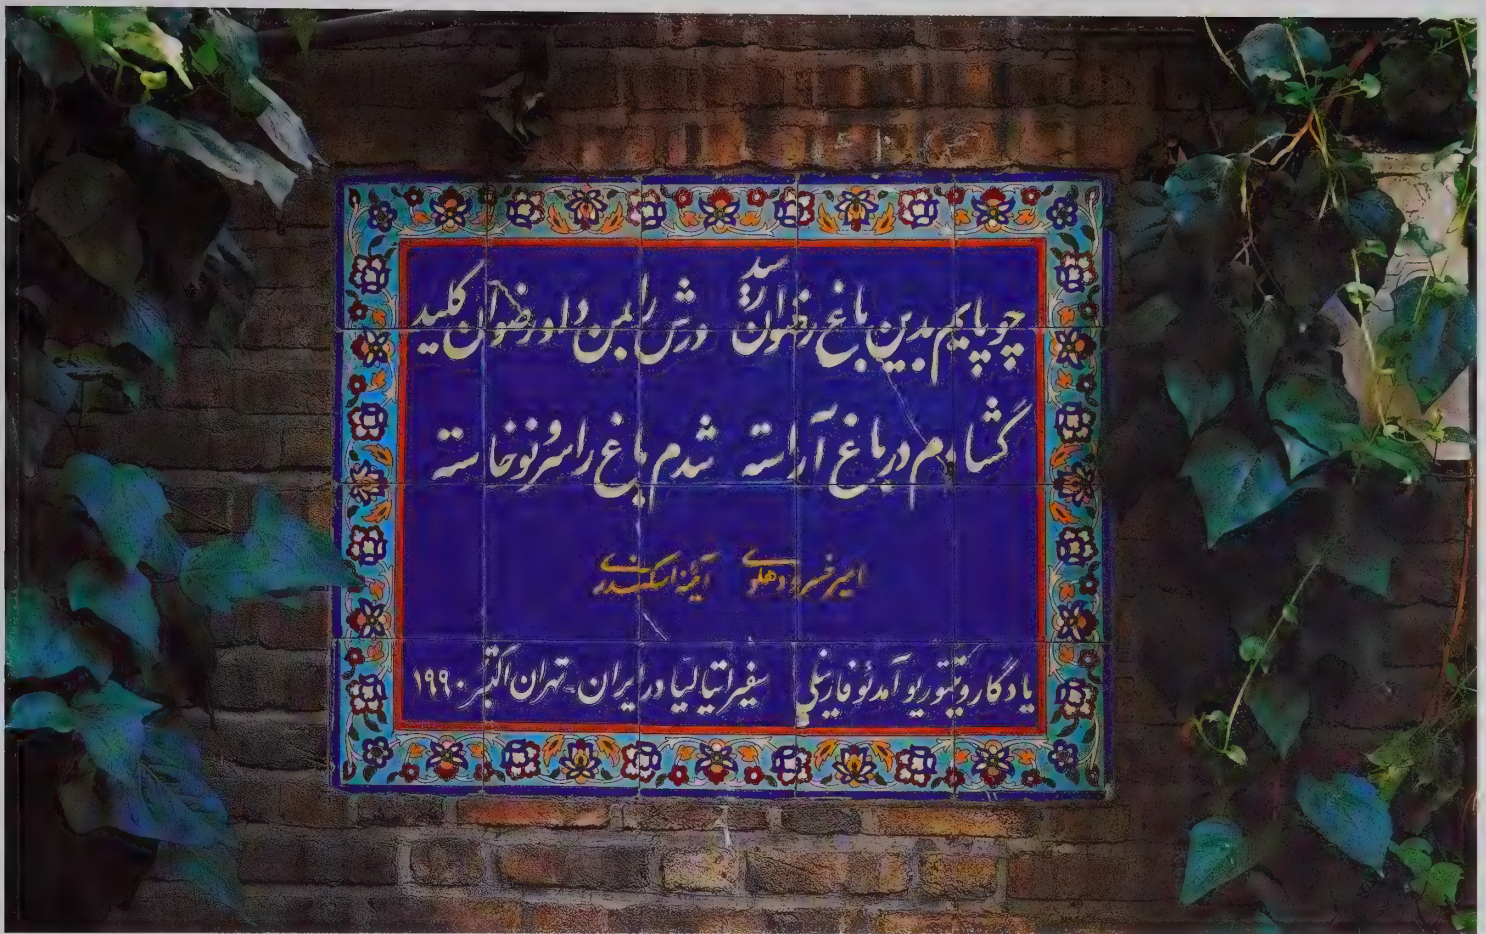 چو پایم بدین باغ رضوان رسید درش را بمن داد رضوان کلید
گشادم در باغ آراسته شدم باغ را سرو نو خاسته
امیر خسرو دهلوی آئینه اسکندری
یادگار ویتوریو آمدئو فارینلی سفیر ایتالیا در ایران - تهران اکتبر ۱۹۹۰